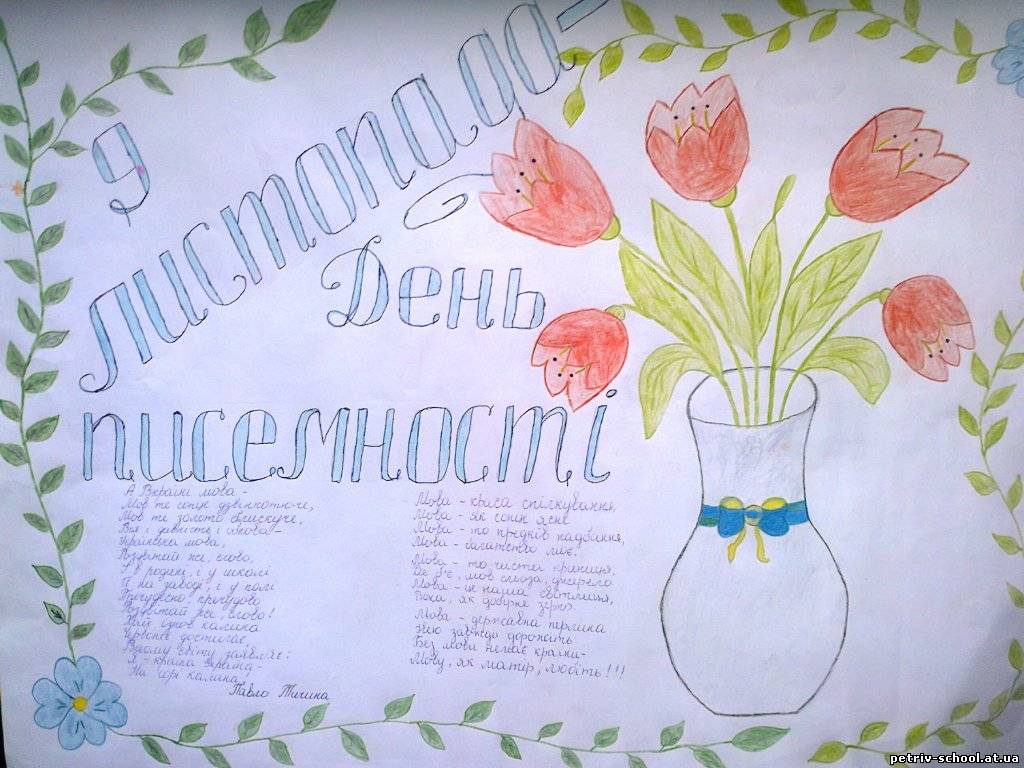 9
листопада-
День
писемності
А Вкраїні мова -
Мов те сонце дзвінкотюче,
Мов те золото блискуче,
Вся і давність і обнова -
Українська мова.
Розцвітай же, слово,
І в родині, і у школі
Й на заводі, і у полі
Пречудесно, пречудово
Розцвітай же, слово!
Хай ізнов калина
Червоніє, достигає,
Всьому світу заявляє:
Я - країна Україна -
На горі калина!
Павло Тичина
Мова - краса спілкування,
Мова - як сонце ясне
Мова - то предків надбання,
Мова - багатство моє.
Мова - то чиста криниця,
Де б'є, мов сльоза, джерело
Мова - це наша світлиця,
Вона, як добірне зерно
Мова - державна перлина
Нею завжди дорожіть
Без мови немає країни-
Мову, як матір, любіть!!!
petriv-school.at.ua